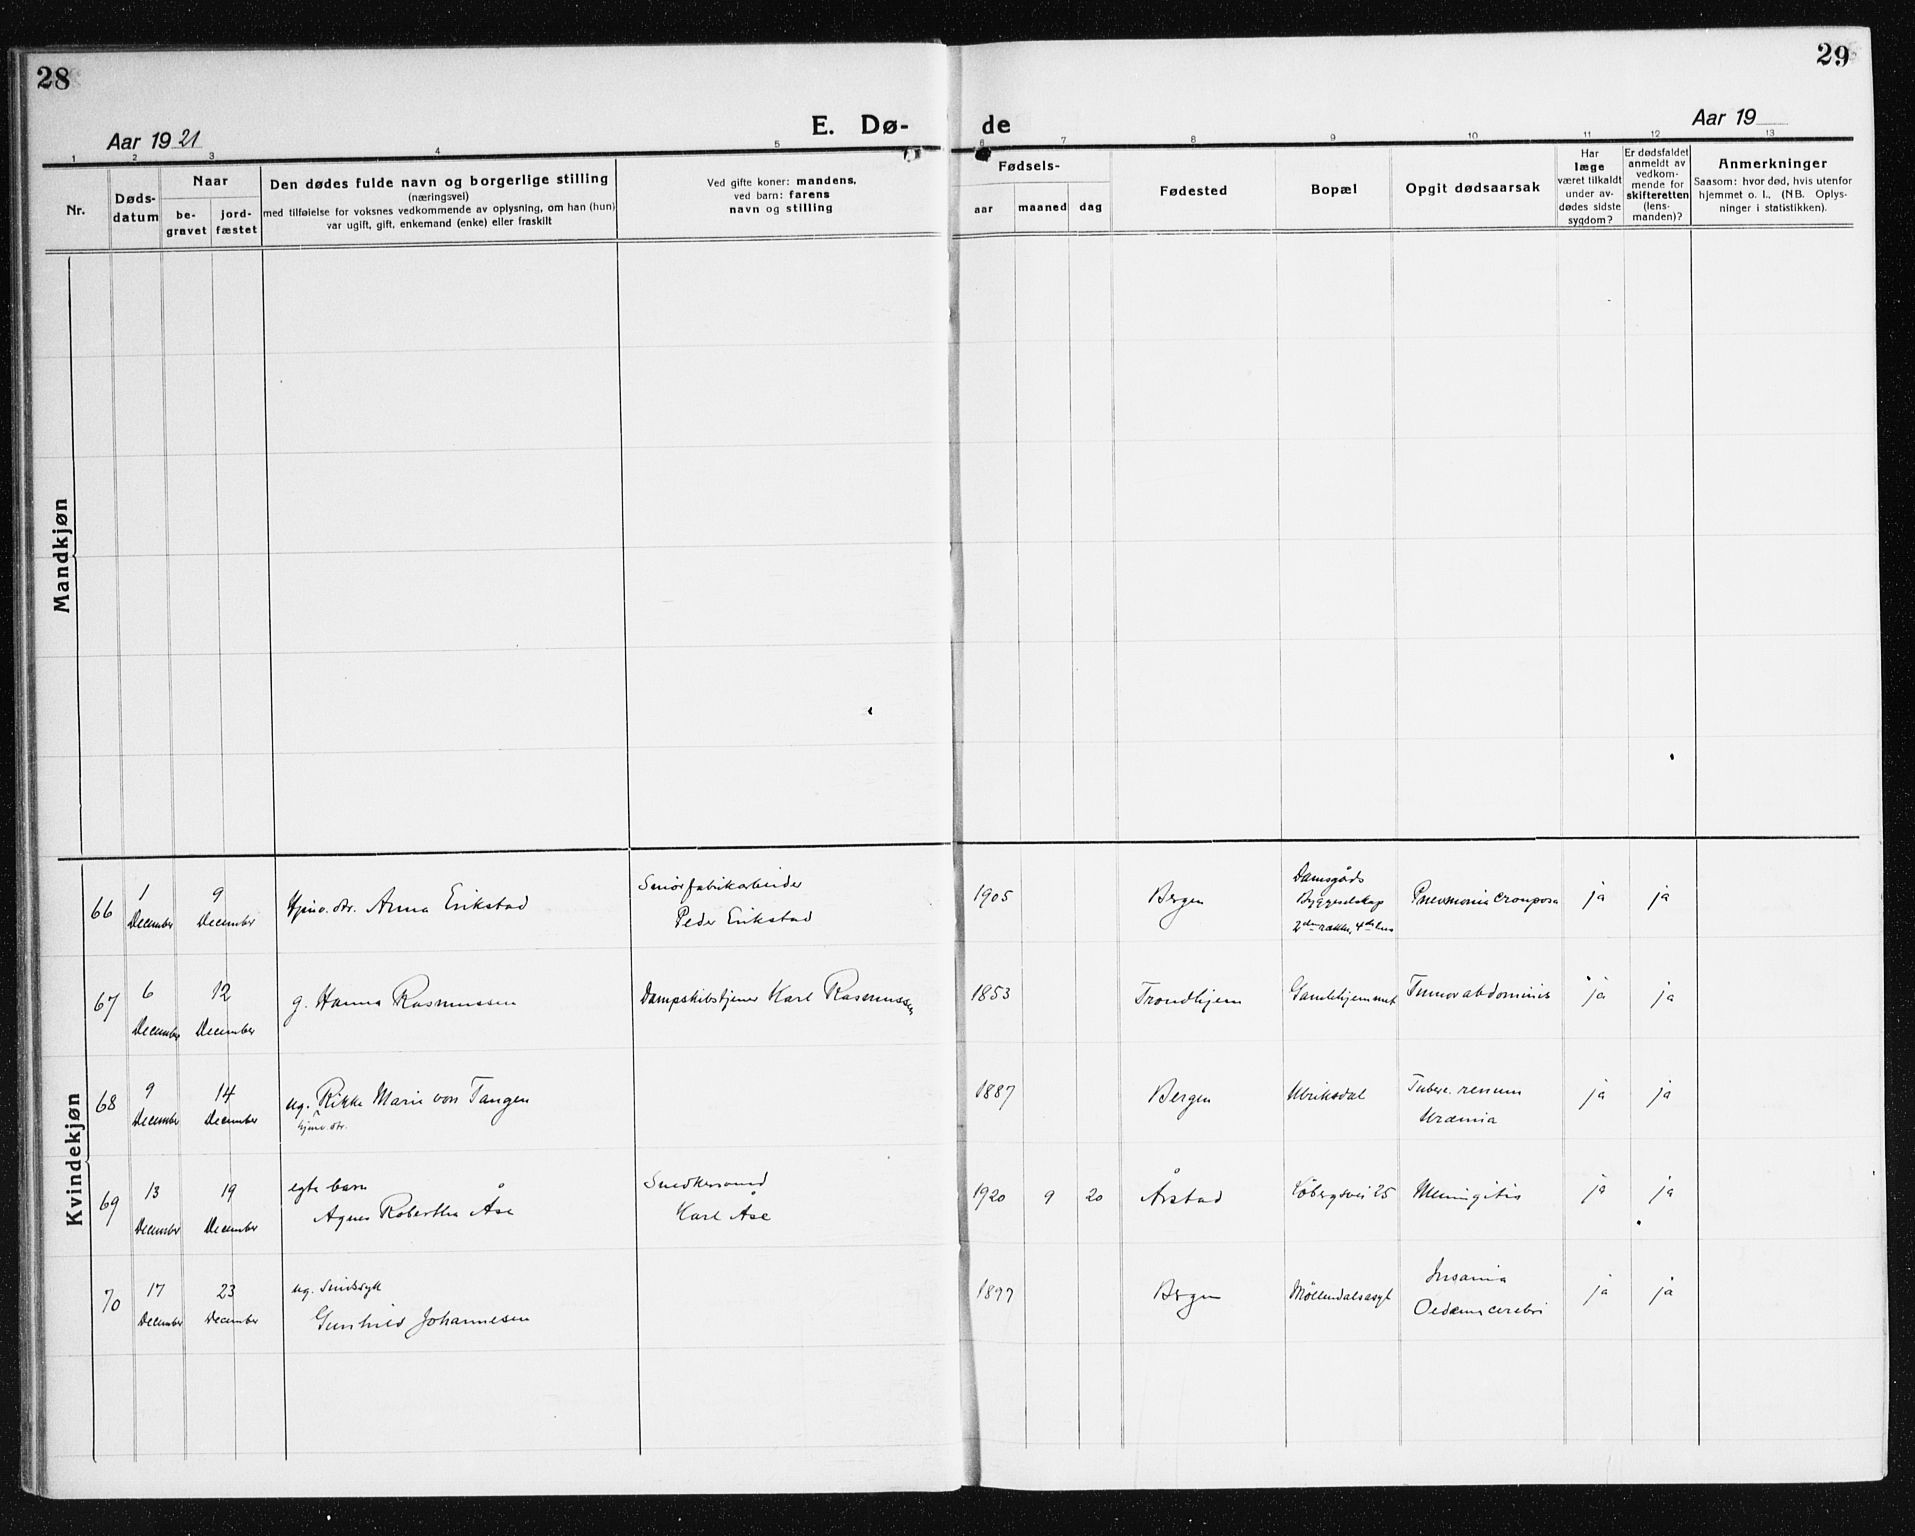 28
29
Aar 1921
E. Dø-
de
Aar 19
1 2 3 4 5 6 7 8 9 10 11 12 13
Nr.
Døds-
datum
Naar
be-
gravet
jord-
fæstet
Den dødes fulde navn og borgerlige stilling
(næringsvei)
med tilføielse for voksnes vedkommende av oplysning, om han (hun)
var ugift, gift, enkemand (enke) eller fraskilt
Ved gifte koner: mandens,
ved barn: farens
navn og stilling
Fødsels-
aar
maaned
dag
Fødested
Bopæl
Opgit dødsaarsak
Har
læge
været tilkaldt
under av-
dødes sidste
sygdom?
Er dødsfaldet
anmeldt av
vedkom-
mende for
skifteretten
(lens-
manden)?
Anmerkninger
Saasom: hvor død, hvis utenfor
hjemmet o. l.. (NB. Oplys-
ninger i statistikken).
Mandkjøn
Kvindekjøn
66
1
December
9
December
Hjmv. dtr. Anna Erikstad
Smørfabrikarbeider
Peder Erikstad
1905
Bergen
Damsgårds
Byggeselskap
2den række, 4de hus
Pneumonia crouposa
ja
ja
67
6
December
12
December
g. Hanna Rasmussen
Dampskibstjener Karl Rasmussen
1853
Trondhjem
Gamlehjemmet
Tumor abdominis
ja
ja
68
9
December
14
December
ug. Rikke Marie von Tangen
hjmv. dtr.
1887
Bergen
Ulriksdal
Tuberc. renum
Urämia
ja
ja
69
13
December
19
December
egte barn
Agnes Robertha Åse
Snedkersvend
Karl Åse
1920
9
20
Årstad
Løbergsvei 25
Meningitis
ja
ja
70
17
December
23
December
ug. Sindssyk
Gunhild Johannesen
1877
Bergen
Møllendalsasyl
Insania
Oedema cerebri
ja
ja